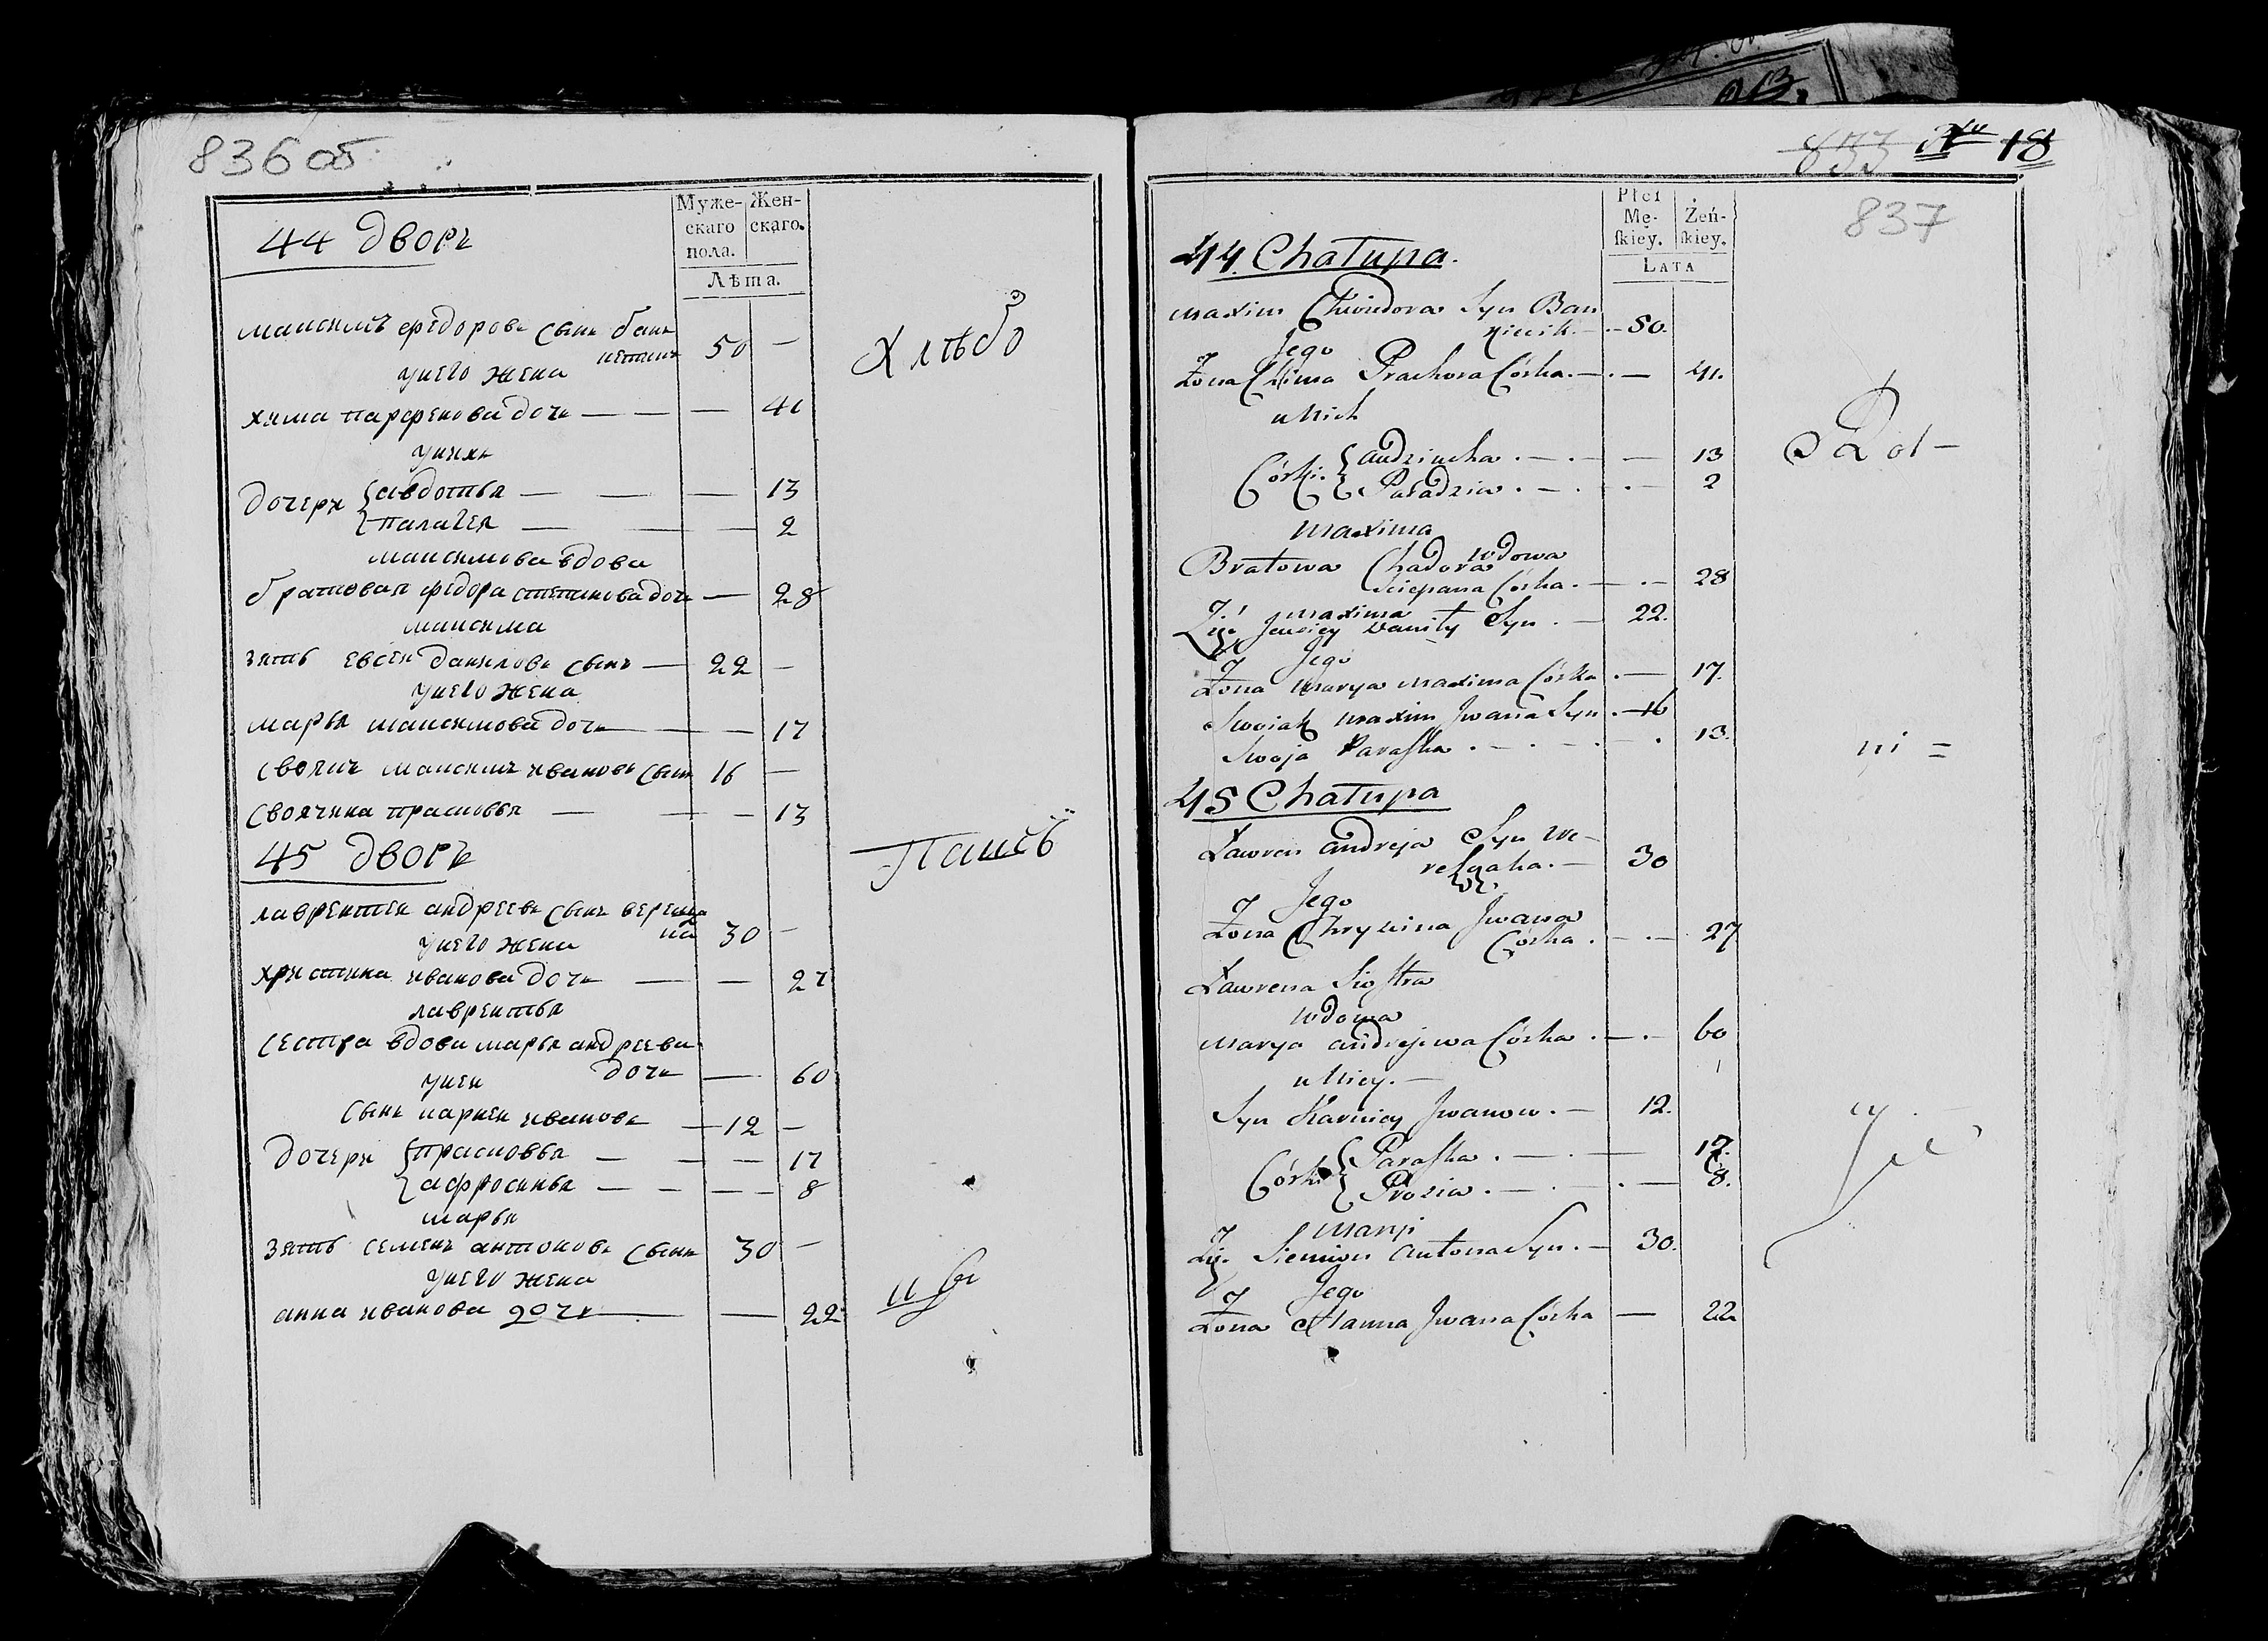 836 об
Муже-
скаго
пола.
Жен-
скаго.
Лѣта.
44 дворъ
максимъ федоровъ сынъ бан
кетикъ 50 —
у него жена
хима парфенова дочь — — — 41
у нихъ
дочери { авдотья — — — 13
{ палагея — — — 2
максимова вдова
братовая федора степанова дочь — 28
максима
зять евсей данилова сынъ — 22 —
у него жена
марья максимова дочь — — — 17
своякъ максимъ ивановъ сынъ 16 —
своячина прасковья — — — 13
45 дворъ
лаврентей андреевъ сынъ вереща
ка 30 —
у него жена
христина иванова дочь — — 27
лаврентья
сестра вдова марья андреева
дочь — 60
у ней
сынъ карней ивановъ — 12 —
дочери { прасковья — — — 17
{ афросинья — — — — 8
марьи
зять семенъ антоновъ сынъ 30 —
у него жена
анна иванова дочь — — 22
Хлѣбо
Пашеѣ
833 18
837
Płci
Mę-
ſkiey.
Żeń-
ſkiey.
LATA
44. Chałupa.
Maxim Chwiedora Syn Ban
kiecik. — 50.
Jego
Żona Chima Prachora Córka. — . — 41.
u Nich
Córki. { Audziucha . — . — 13
{ Paładzia . — . — 2
Maxima
Bratowa Chadora wdowa
Sciepana Córka. — . — 28
Maxima
Zięć Jewsiey Daniły Syn . — 22.
Jego
Żona Marya Maxima Córka . — 17.
Swoiak Maxim Jwana Syn . — 16
Swoja Paraſka . — . — . — . 13.
45 Chałupa
Ławren Andreja Syn We-
reſzczaka. — 30
Jego
Żona Chryscina Jwana
Córka . — . — 27
Ławrena Sioſtra
wdowa
Marya Andrejewa Córka . — . — 60
u Niey. —
Syn Karniey Jwanow. — 12.
Córki { Paraſka . — . — 17.
{ Prosia . — . — . — 8.
Maryi
Zięć Siemion Antona Syn. — 30.
Jego
Żona Hanna Jwana Córka — 22